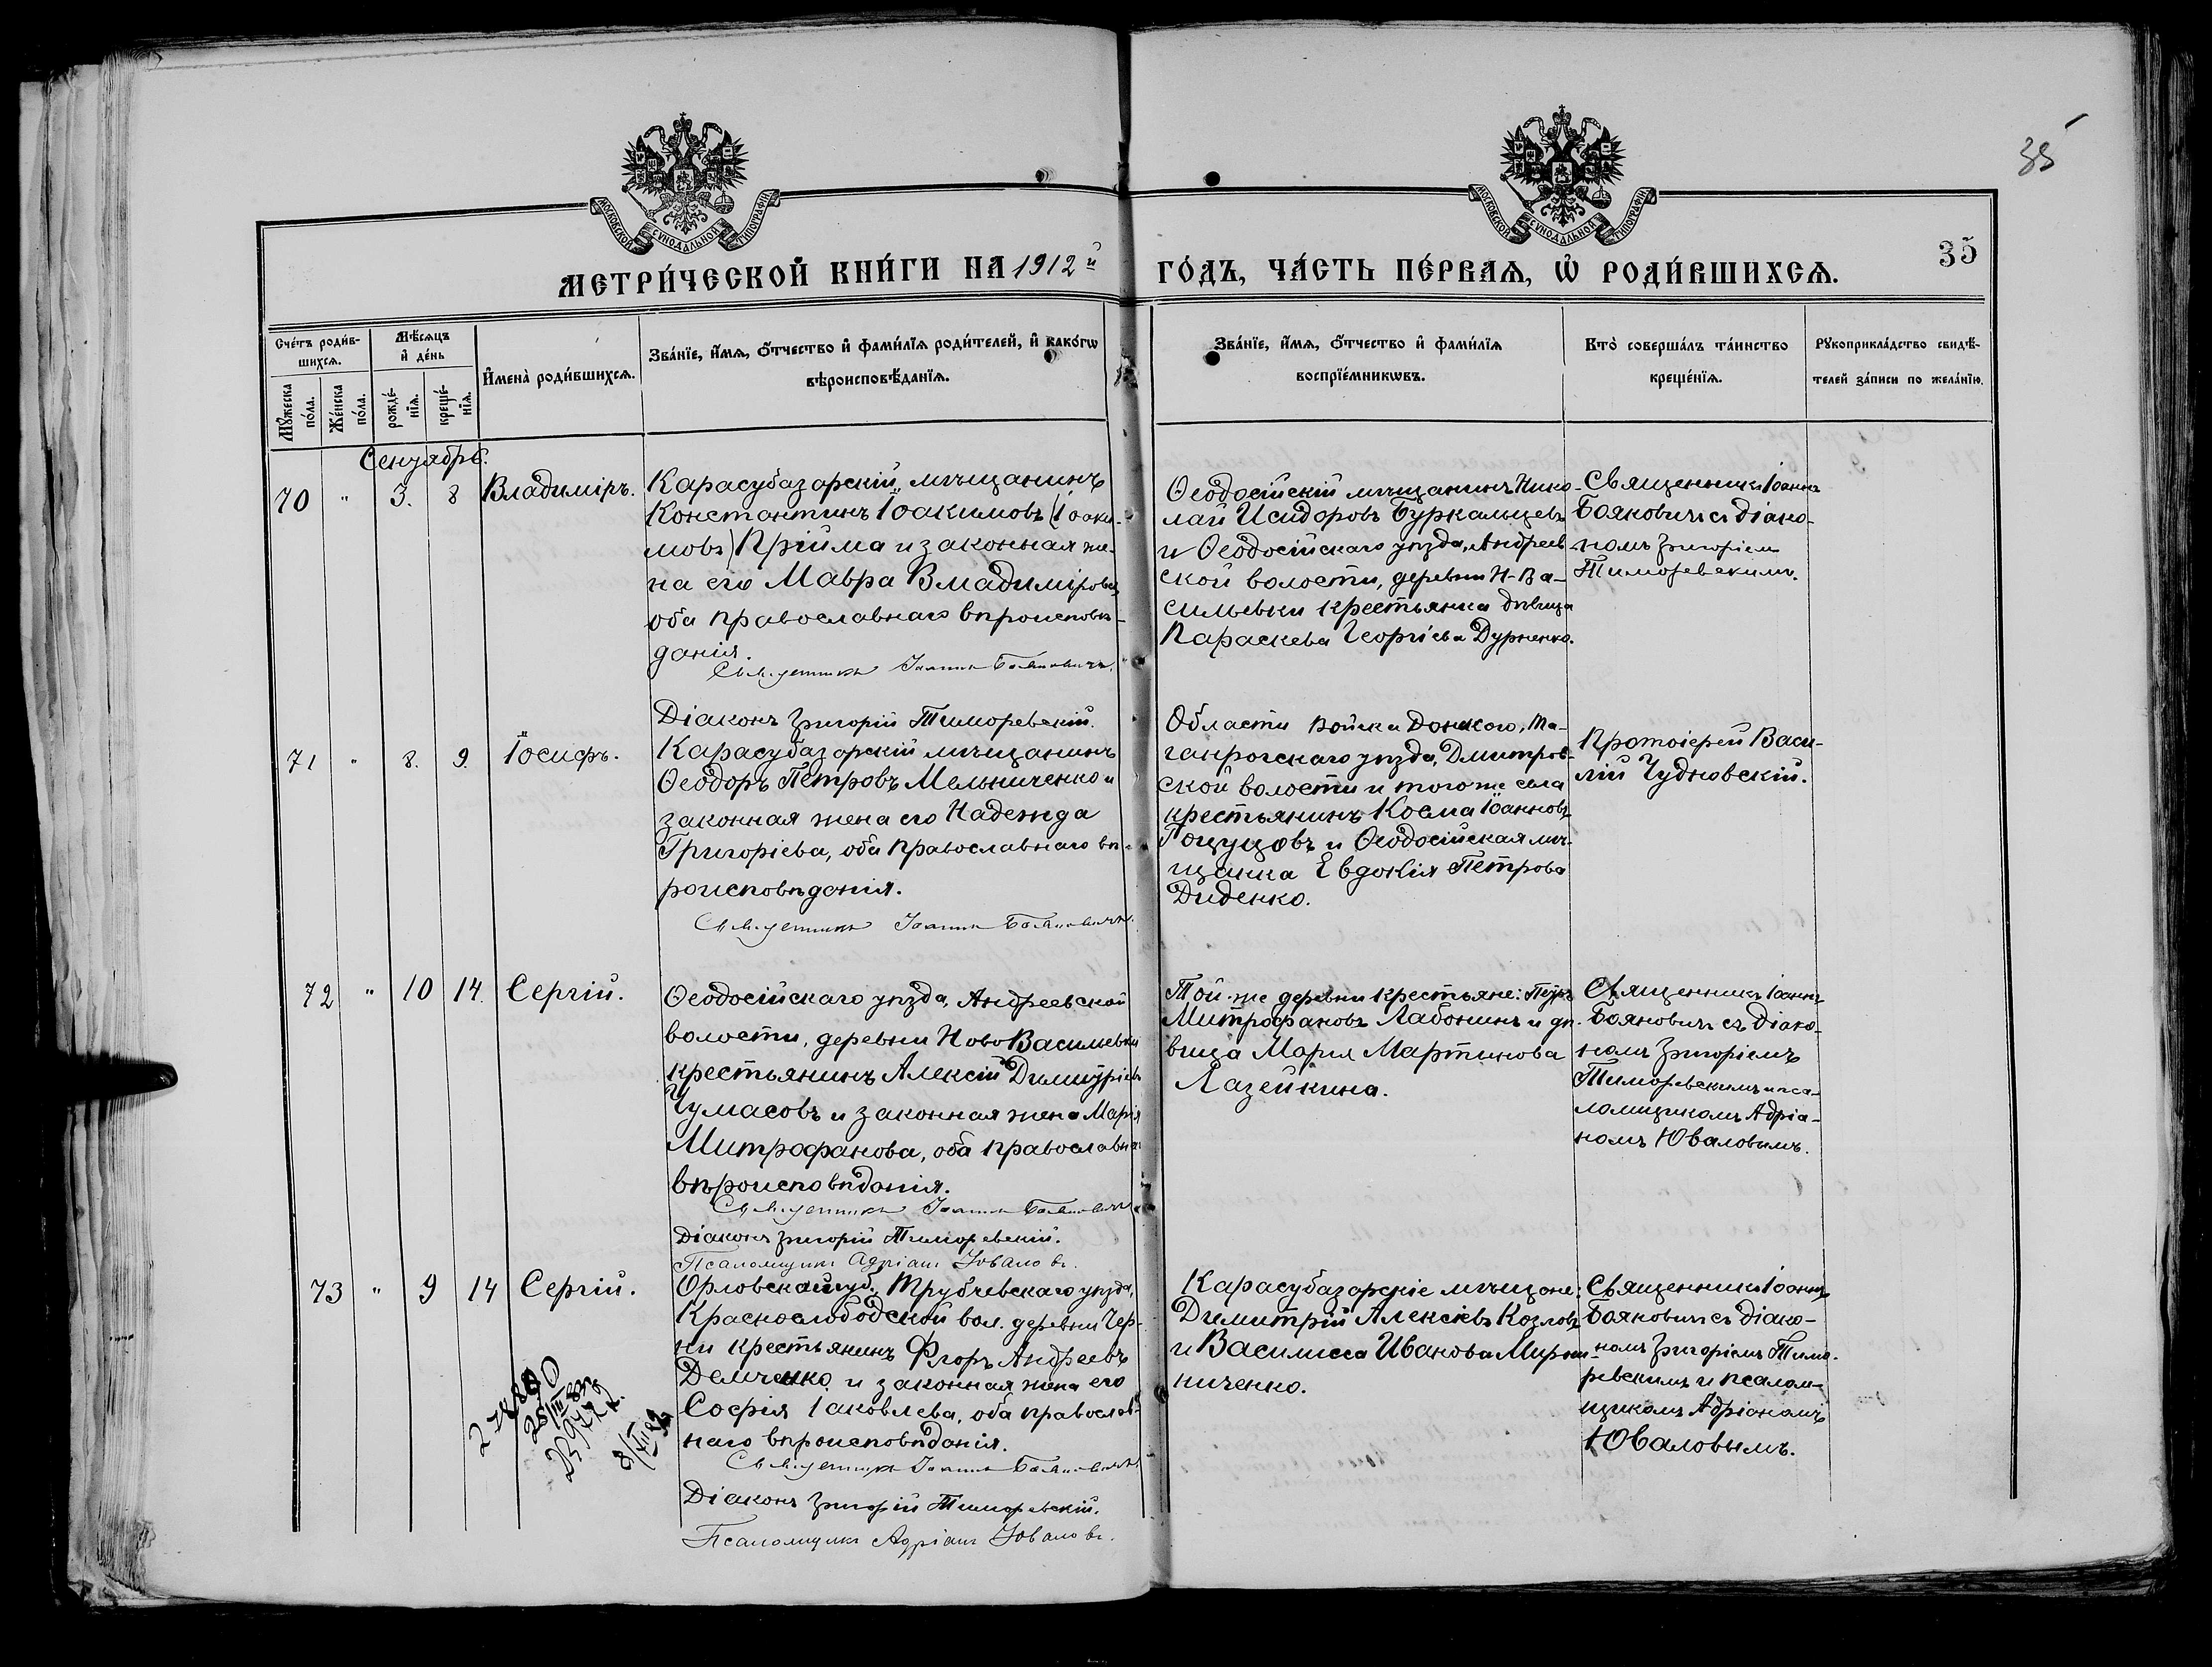 35
МОСКОВСКОЙ СѴНОДАЛЬНОЙ ТИПОГРАФІИ
МОСКОВСКОЙ СѴНОДАЛЬНОЙ ТИПОГРАФІИ
МЕТРИ́ЧЕСКОЙ КНИ́ГИ НА 1912й ГО́ДЪ, ЧА́СТЬ ПЕ́РВАѦ, Ѡ҆ РОДИ́ВШИХСѦ.
35
Сче́тъ роди́в-
шихсѧ.
Мꙋ́жеска по́ла.
Же́нска по́ла.
Мѣ́сѧцъ
и҆ де́нь
рожде́-
нїѧ.
креще́-
нїѧ.
И҆мена̀ роди́вшихсѧ.
Зва́нїе, и҆́мѧ, ѻ҆́тчество и҆ фами́лїѧ роди́телей, и҆ како́гѡ
вѣроисповѣ́данїѧ.
Зва́нїе, и҆́мѧ, ѻ҆́тчество и҆ фами́лїѧ
воспрїе́мникѡвъ.
Кто̀ соверша́лъ та́инство
креще́нїѧ.
Рꙋкоприкла́дство свидѣ́-
телей за́писи по жела́нїю.
Сентябрь.
70 " 3. 8 Владиміръ.
Карасубазарскій мѣщанинъ
Константинъ Іоакимовъ (Іоаки-
мовъ) Пріима и законная же-
на его Мавра Владимірова,
оба православнаго вѣроисповѣ-
данія.
Священникъ Іоаннъ Бояновичъ.
Діаконъ Григорій Тиморевскій.
Ѳеодосійскій мѣщанинъ Нико-
лай Исидоровъ Буркальцевъ
и Ѳеодосійскаго уѣзда, Андреев-
ской волости, деревни Н-Ва-
сильевки крестьянка дѣвица
Параскева Георгіева Дурненко.
Священникъ Іоаннъ
Бояновичъ съ діако-
номъ Григоріем
Тиморевскимъ.
71 " 8. 9. Іосифъ.
Карасубазарскій мѣщанинъ
Ѳеодоръ Петровъ Мельниченко и
законная жена его Надежда
Григоріева, оба православнаго вѣ-
роисповѣданія.
Священникъ Іоаннъ Бояновичъ.
Области Войска Донского, Та-
ганрогскаго уѣзда, Дмитров-
ской волости и того же села
крестьянинъ Косма Іоанновъ
и Ѳеодосійская мѣ-
щанка Евдокія Петрова
Диденко.
Протоіерей Васи-
лій Чудновскій.
72 " 10 14. Сергій.
Ѳеодосійскаго уѣзда, Андреевской
волости, деревни Ново Васильевки
крестьянинъ Алексій Димитріевъ
Чумасовъ и законная жена Марія
Митрофанова, оба православна
вѣроисповѣданія.
Священникъ Іоаннъ Бояновичъ
Діаконъ Григорій Тиморевскій.
Псаломщикъ Адріанъ Юваловъ.
Той-же деревни крестьяне: Петръ
Митрофановъ Лабонинъ и дѣ-
вица Марія Мартинова
Лазейкина.
Священникъ Іоаннъ
Бояновичъ съ діако-
номъ Григоріемъ
Тиморевскимъ и пса-
ломщикомъ Адріа-
номъ Юваловымъ.
73 " 9 14 Сергій.
Орловской губ., Трубчевскаго уѣзда,
Краснослободской вол. деревни Чер-
ни крестьянинъ Флоръ Андреевъ
Демченко и законная жена его
Софія Іаковлева, оба православ-
наго вѣроисповѣданія.
Священникъ Іоаннъ Бояновичъ.
Діаконъ Григорій Тиморевскій.
Псаломщикъ Адріанъ Юваловъ.
Карасубазарскіе мѣщане:
Димитрій Алексіевъ Козловъ
и Василисса Иванова Мирош-
ниченко.
Священникъ Іоаннъ
Бояновичъ съ діако-
номъ Григоріемъ Тимо-
ревскимъ и псалом-
щикомъ Адріаномъ
Юваловымъ.